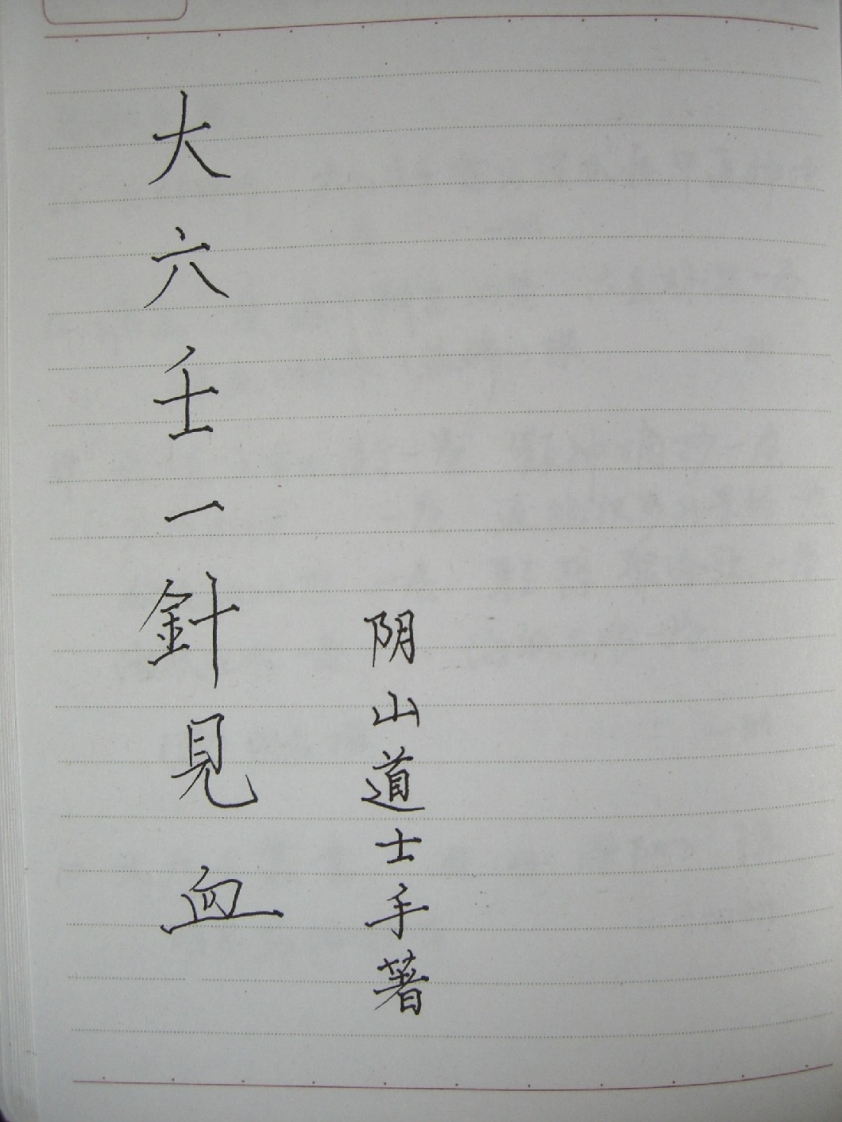 大六壬一針見血
阴山道士手著